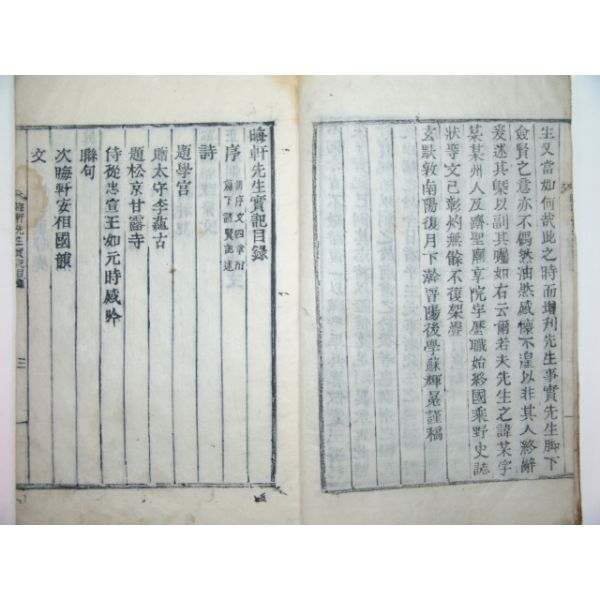 生又當如何哉此之時而增刋先生事實先生脚下
僉賢之意亦不偶然油然感懷不遑以非其人終辭
爰述其槩以副其囑如右云爾若夫先生之諱某字
某某州人及齋聖廟享院宇歷職始終國乘野史誌
狀等文已彰灼無餘不復架疊
玄默敦南陽復月下澣晋陽後學蘇輝冕謹稿
晦軒先生實記目錄
序 諸序文四章附篇下諸賢記述
詩
題學宮
贈太守李蘊古
題松京甘露寺
侍從忠宣王如元時感吟
聯句
次晦軒安相國韻
文
晦軒先生實記目錄
三